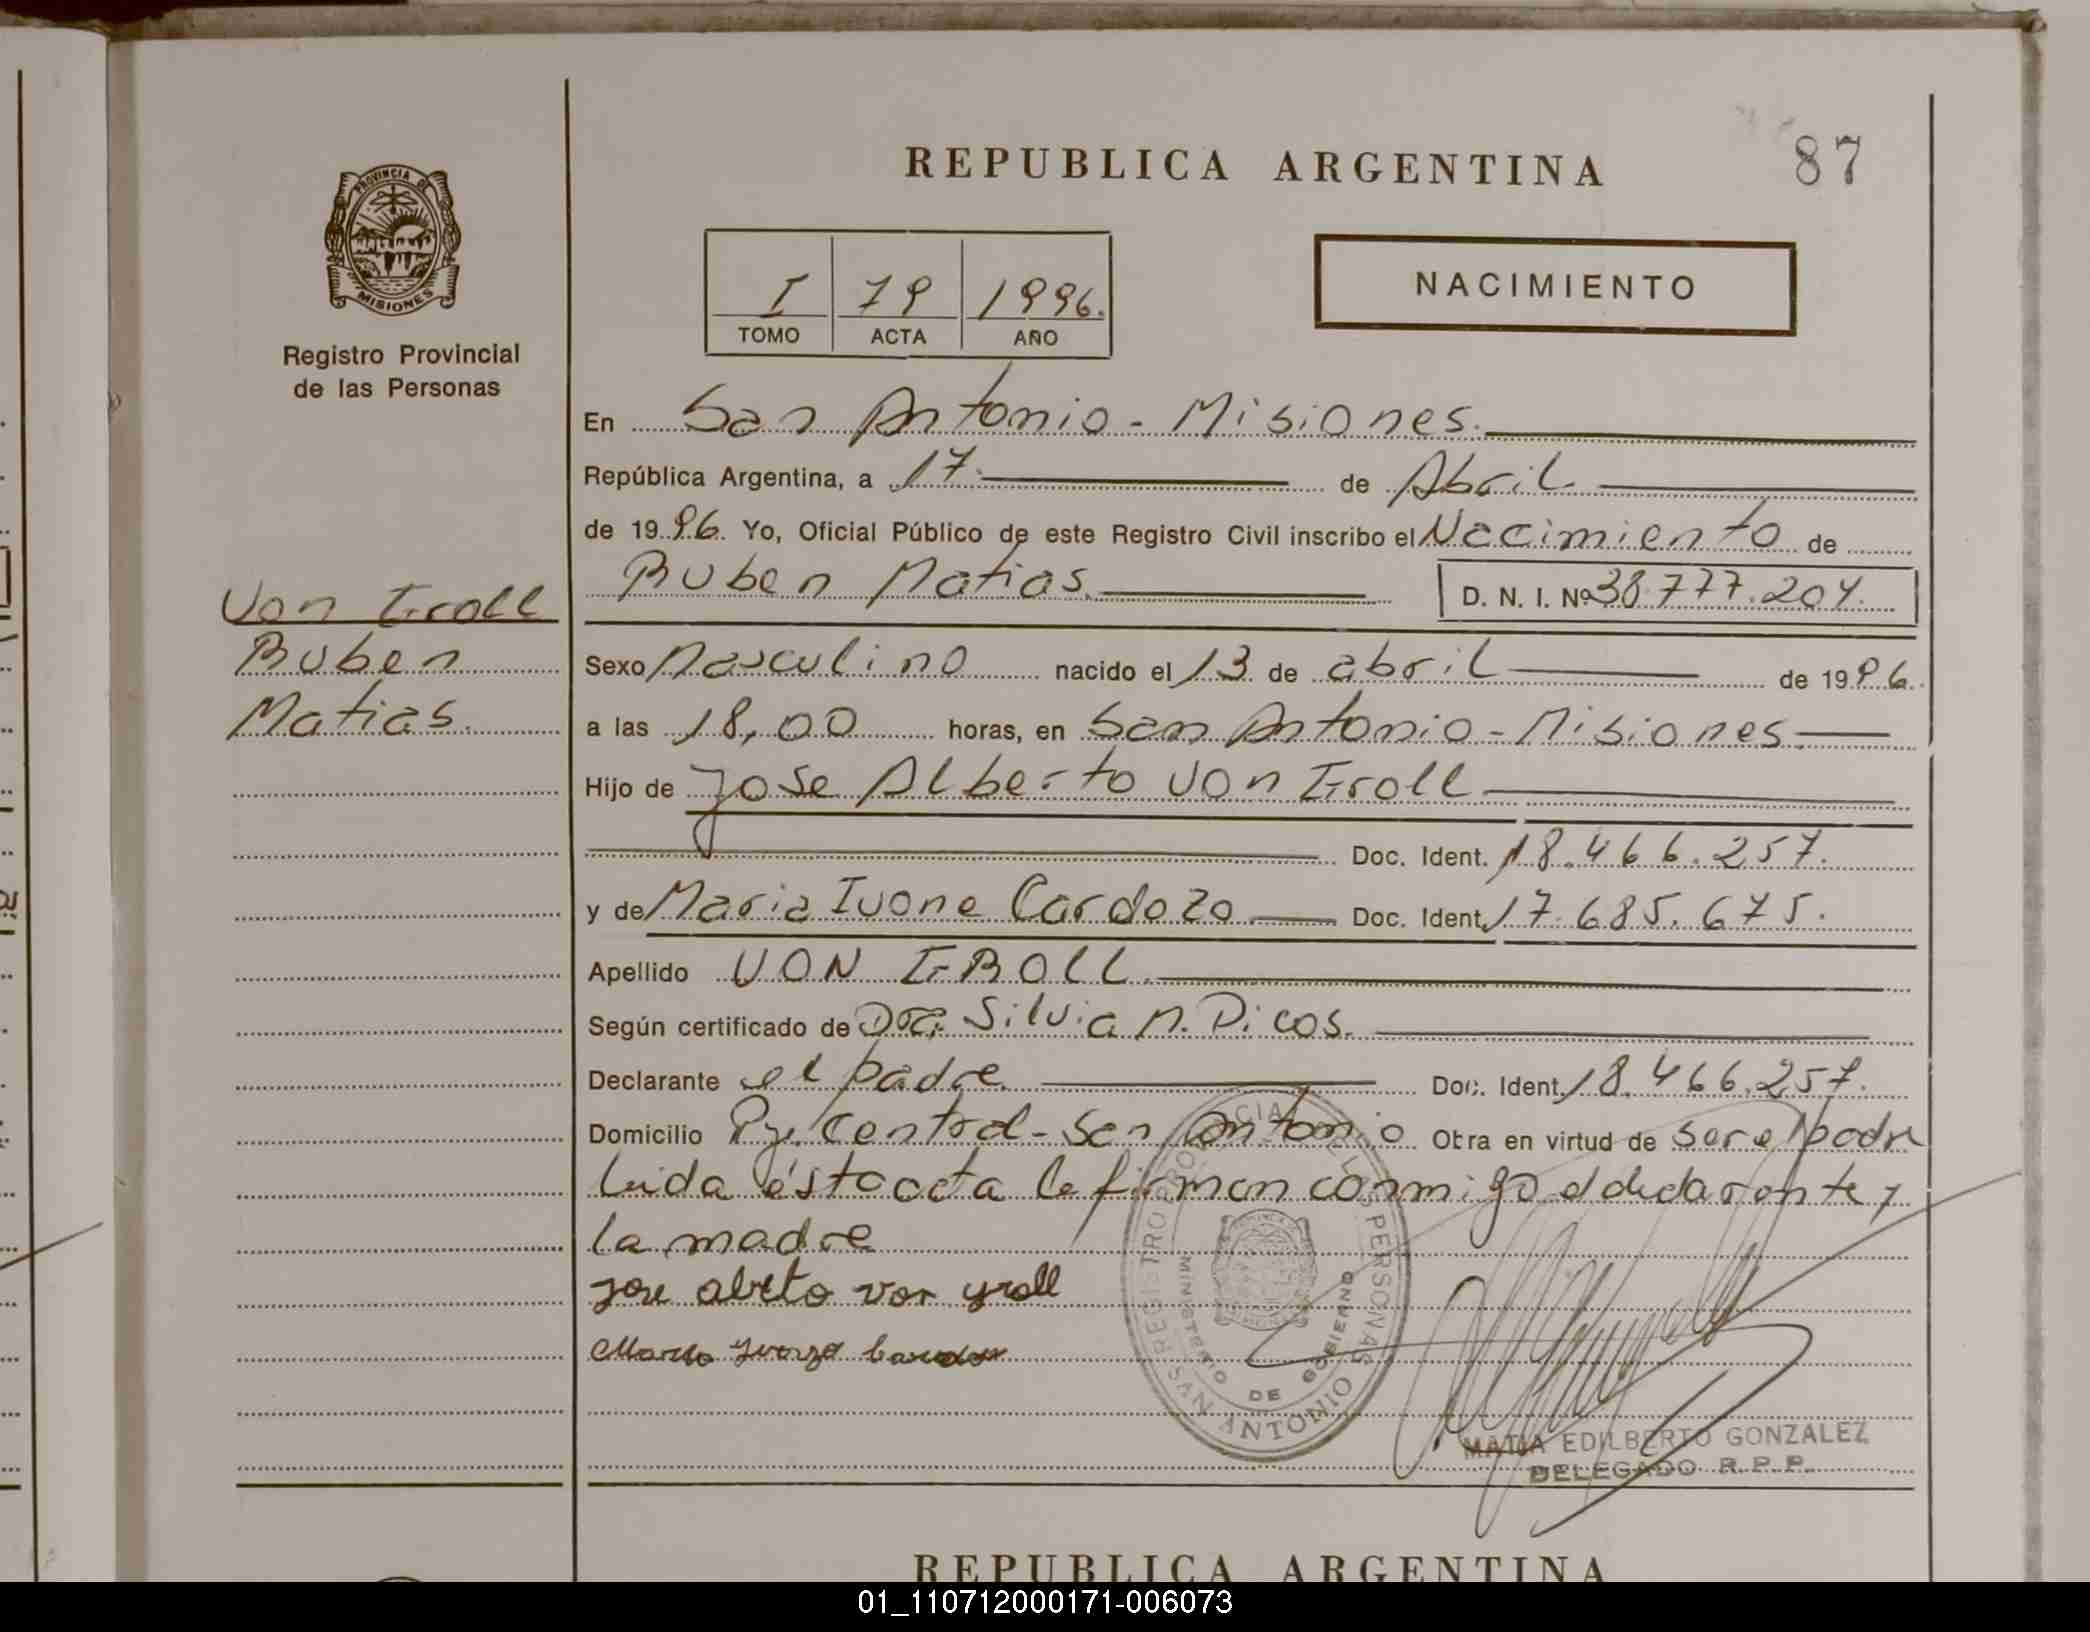 REPUBLICA ARGENTINA
87
PROVINCIA DE
MISIONES
Registro Provincial
de las Personas
I 79 1996.
TOMO ACTA AÑO
NACIMIENTO
En San Antonio - Misiones.
República Argentina, a 17 de Abril
de 1996. Yo, Oficial Público de este Registro Civil inscribo el Nacimiento de
Ruben Matias. D. N. I. Nº 38.777.204.
Von Groll
Ruben
Matias.
Sexo Masculino nacido el 13 de abril de 1996.
a las 18,00 horas, en San Antonio - Misiones.
Hijo de Jose Alberto Von Groll
Doc. Ident. 18.466.257.
y de Maria Ivone Cardozo Doc. Ident. 17.685.675.
Apellido VON GROLL.
Según certificado de Dra. Silvia M. Picos.
Declarante el padre Doc. Ident. 18.466.257.
Domicilio Pje. Central - San Antonio Obra en virtud de ser el padre
Leida ésta acta la firman conmigo el declarante y
la madre
jose alveto von groll
REGISTRO PROVINCIAL DE LAS PERSONAS
MINISTERIO DE GOBIERNO
SAN ANTONIO
MATIA EDILBERTO GONZALEZ
DELEGADO R.P.P.
REPUBLICA ARGENTINA
01_110712000171-006073